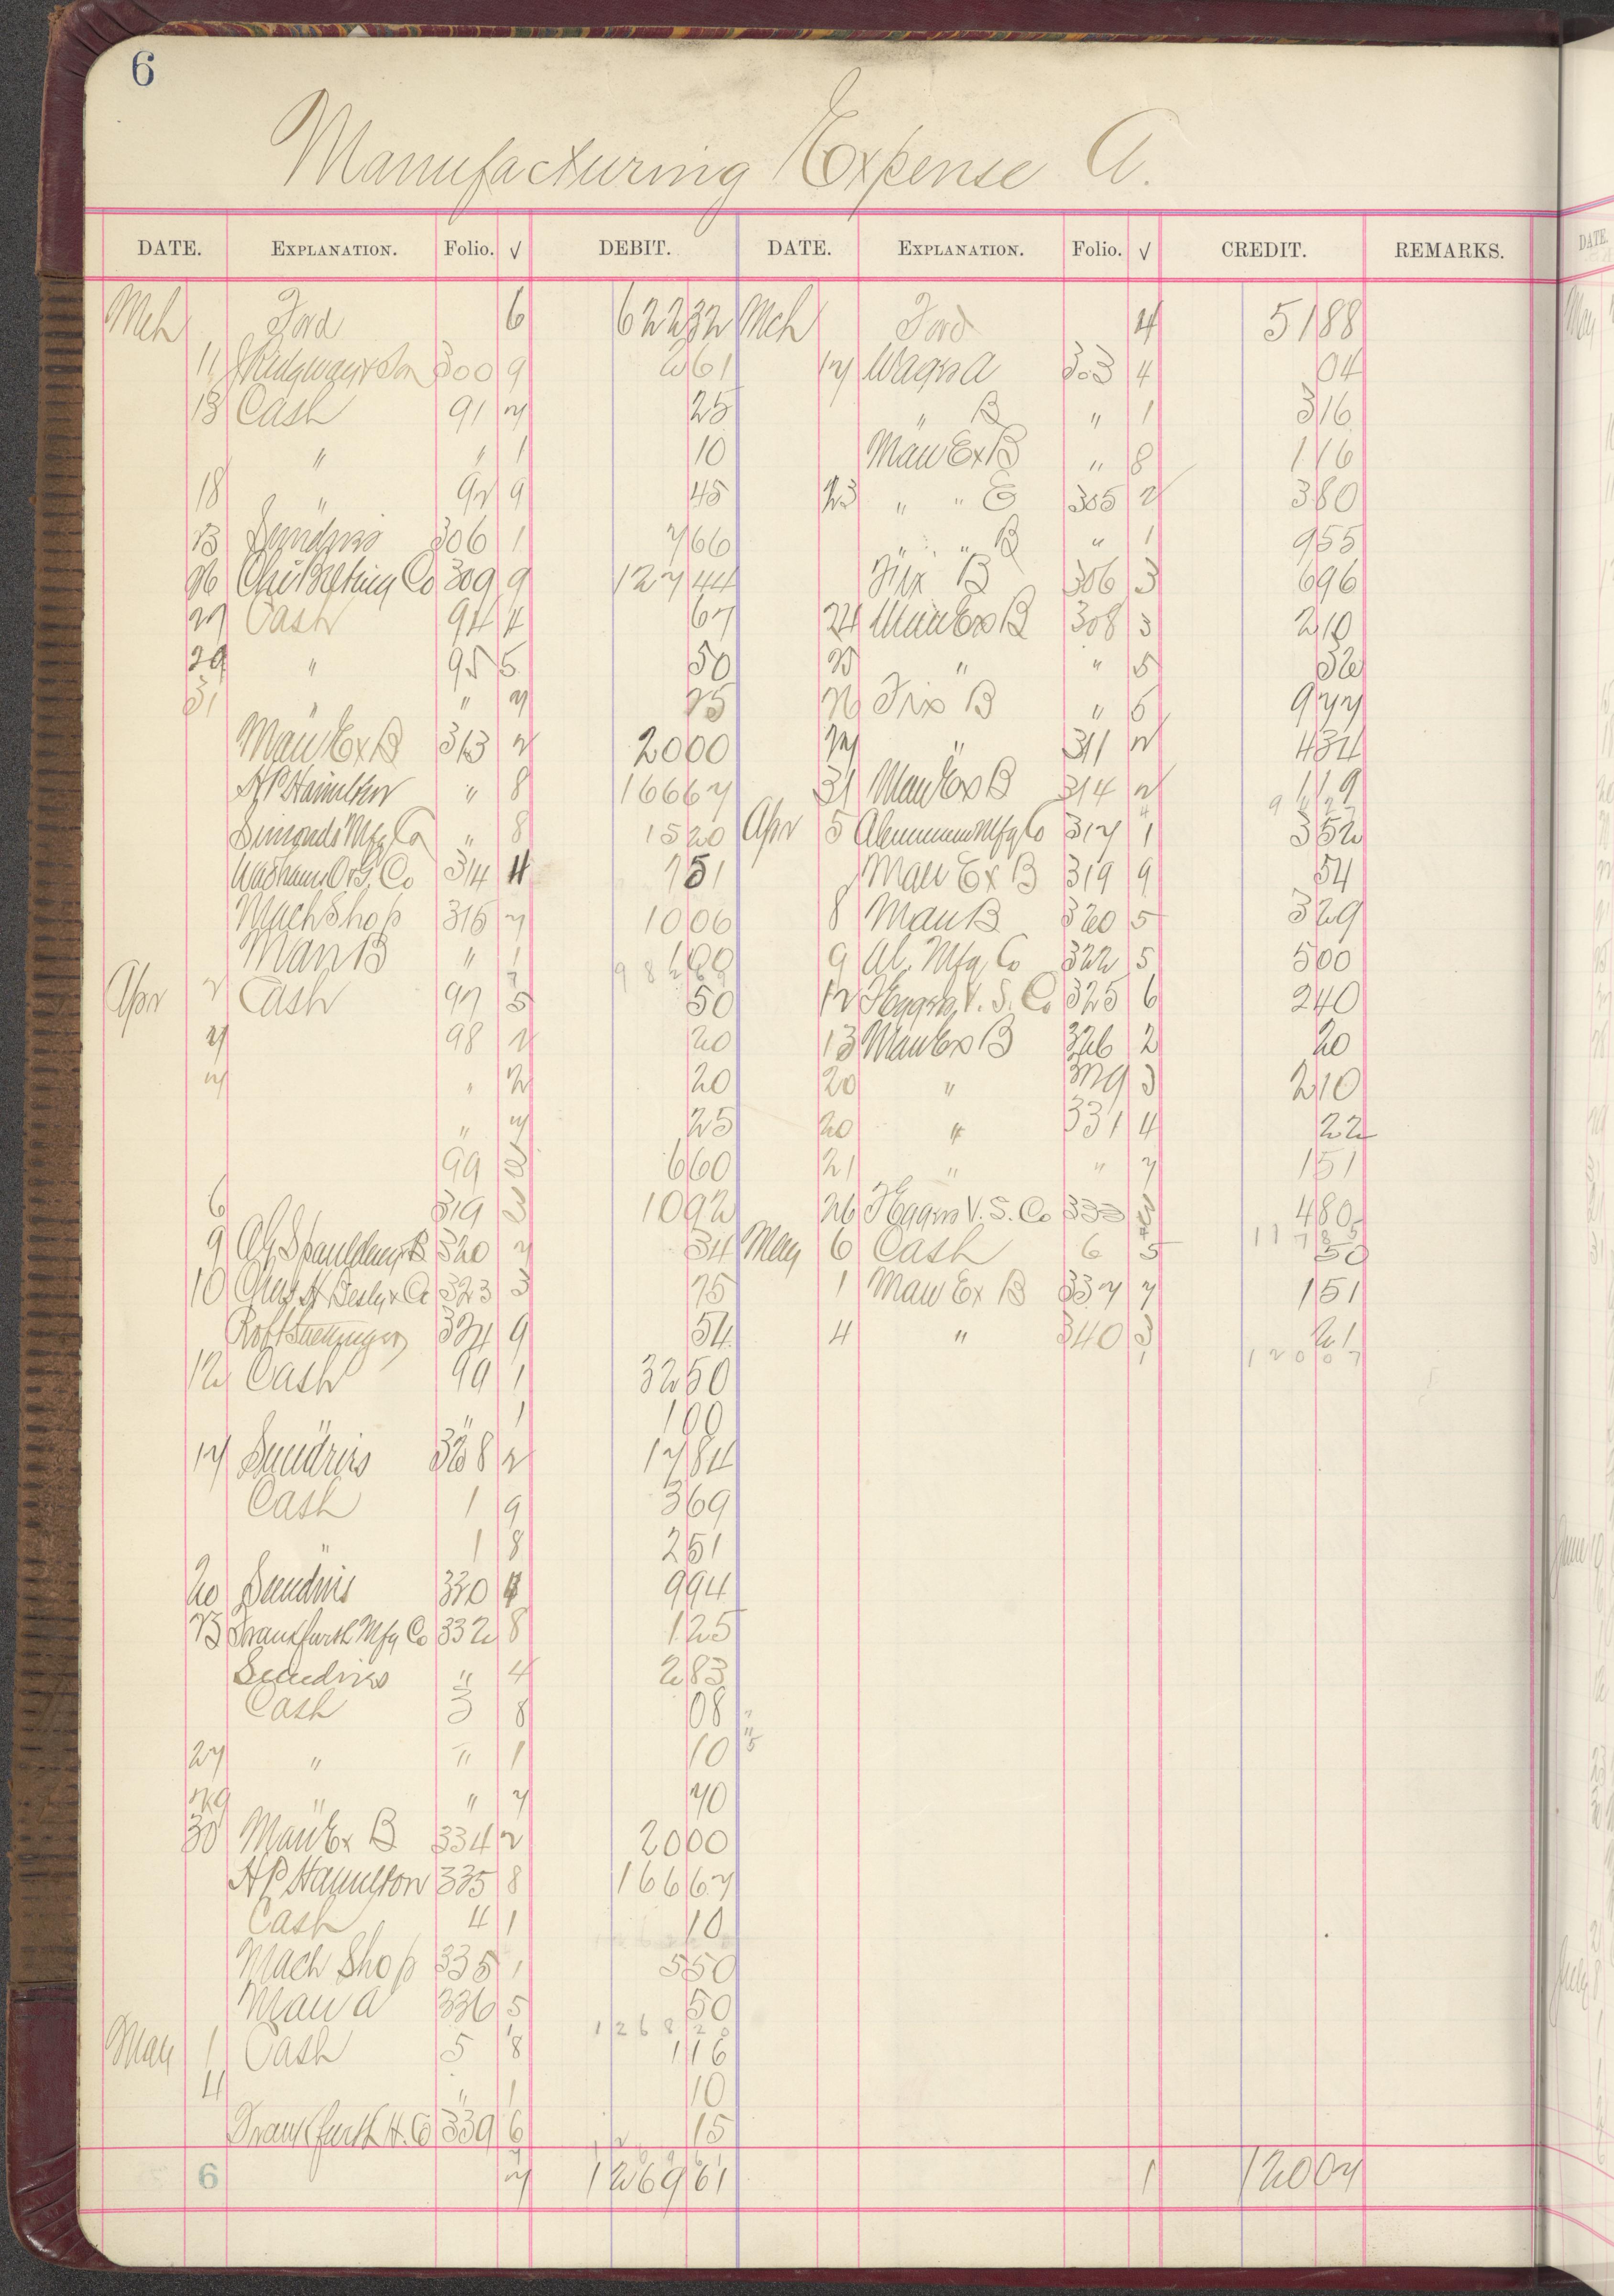 6
Manufacturing Expense A.
DATE. EXPLANATION. Folio. √ DEBIT. DATE. EXPLANATION. Folio. √ CREDIT. REMARKS.
Mch Ford 6 622 32 Mch Ford 4 51 88
11 300 9 2 61 17 Wages A 303 4 04
13 Cash 91 7 25 " B " 1 3 16
" " 1 10 Man Ex B " 8 1 16
18 " 92 9 45 23 " " E 305 2 3 80
23 Sundries 306 1 7 66 " " B " 1 9 55
26 Chi Belting Co 309 9 127 44 Fix B 306 3 6 96
27 Cash 94 4 67 24 Man Ex B 308 3 2 10
29 " 95 5 50 25 " " 5 32
31 " " 7 25 26 Fix B " 5 9 77
Man Ex B 313 2 20 00 27 " 311 2 4 34
HP Hamilton " 8 166 67 31 Man Ex B 314 2 1 19
Simonds Mfg Co " 8 15 20 Apr 5 Aluminum Mfg Co 317 1 3 52
Wadhams O & G. Co 314 4 7 51 Man Ex B 319 9 54
Mach Shop 315 7 10 06 8 Man B 320 5 3 29
Man B " 1 1 00 9 Al. Mfg Co 322 5 5 00
Apr 2 Cash 97 5 50 12 V. S. Co 325 6 2 40
7 98 2 20 13 Man Ex B 326 2 20
7 " 2 20 20 " 329 3 2 10
" 7 25 20 " 331 4 22
99 6 60 21 " " 7 1 51
6 319 3 10 92 26 V. S. Co 333 3 4 80
117 35
9 A G Spaulding & B 320 7 34 May 6 Cash 6 5 50
10 Chas H Besly & Co 323 3 75 1 Man Ex B 337 7 1 51
324 9 54 4 " 340 3 21
120 07
12 Cash 99 1 32 50
" " 1 1 00
17 Sundries 328 2 17 84
Cash 1 9 3 69
" 1 8 2 51
20 Sundries 330 4 9 94
23 Frankfurth Mfg Co 332 8 1 25
Sundries " 4 2 83
Cash 3 8 08
27 " " 1 10
29 " " 7 70
30 Man Ex B 334 2 20 00
HP Hamilton 335 8 166 67
Cash 4 1 10
Mach Shop 335 1 5 50
Man A 336 5 50
1268 20
May 1 Cash 5 8 1 16
4 " 1 10
Frankfurth H. Co 339 6 15
6 7 1269 61 1 120 07